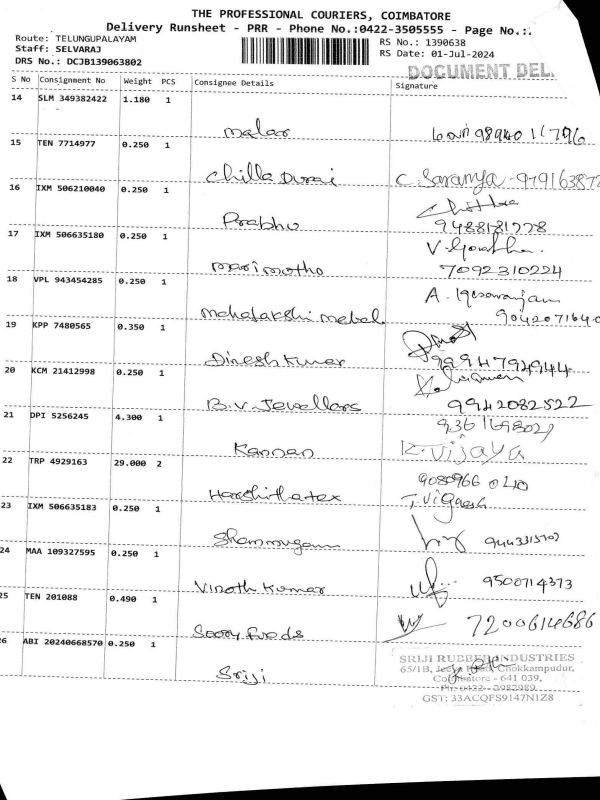 THE PROFESSIONAL COURIERS, COIMBATORE
Delivery Runsheet - PRR - Phone No.:0422-3505555 - Page No.:
Route: TELUNGUPALAYAM
Staff: SELVARAJ
DRS No.: DCJB139063802
RS No.: 1390638
RS Date: 01-Jul-2024
DOCUMENT DEL
S No Consignment No Weight PCS Consignee Details Signature
14 SLM 349382422 1.180 1
malar
15 TEN 7714977 0.250 1
Chilla Durai C. Saranya
16 IXM 506210040 0.250 1
Prabhu 9488181778
17 IXM 506635180 0.250 1
marimotho 7092310224
18 VPL 943454285 0.250 1
mahalakshi mebal
19 KPP 7480565 0.350 1
Dinesh Kumar
20 KCM 21412998 0.250 1
B.V. Jewellars 9942082522
21 DPI 5256245 4.300 1
Kannan K. Vijaya
22 TRP 4929163 29.000 2
Harshithatex
23 IXM 506635183 0.250 1
Shanmugam
24 MAA 109327595 0.250 1
Vinoth Kumar 9500714373
25 TEN 201088 0.490 1
7200614686
26 ABI 20240668570 0.250 1
Sriji
SRIJI RUBBER INDUSTRIES
65/1B, Chokkampudur,
Coimbatore - 641 039.
GST: 33ACQFS9147N1Z8